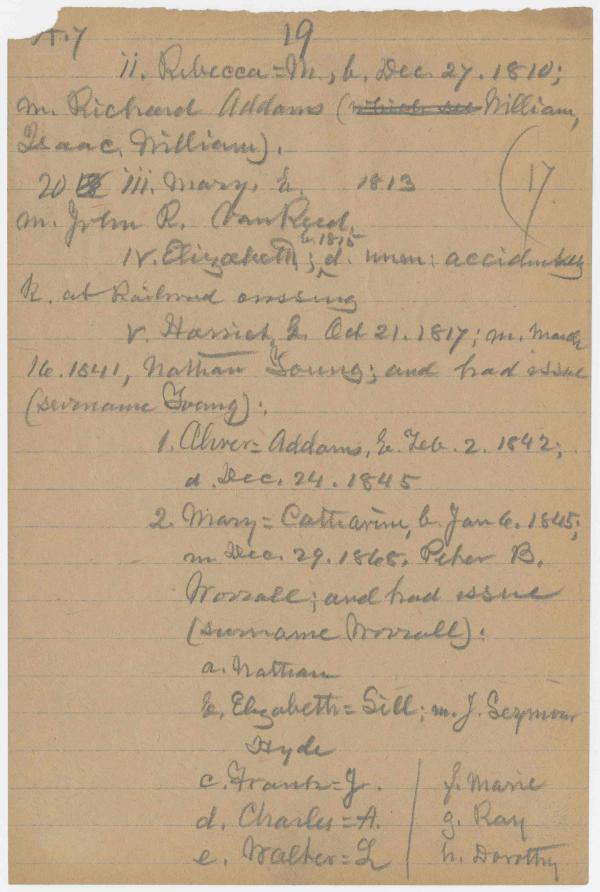 A.7 19
ii. Rebecca=M., b. Dec. 27. 1810;
m. Richard Addams (which see William,
Isaac, William).
20 iii. Mary, b. 1813
m. John R. Van Reed.
b. 1815
iv. Elizabeth; d. unm: accidentally
k. at Railroad crossing
17
v. Harriet, b. Oct 21. 1817; m. March
16. 1841, Nathan Young; and had issue
(surname Young):
1. Abner=Addams, b. Feb. 2. 1842;
d. Dec. 24. 1845
2. Mary=Catharine, b. Jan 6. 1845;
m Dec. 29. 1868. Peter B.
Worrall; and had issue
(surname Worrall):
a. Nathan
b. Elizabeth=Sill; m. J. Seymour
Hyde
c. Frank=J. f. Marie
d. Charles=A. g. Ray
e. Walter=L h. Dorothy